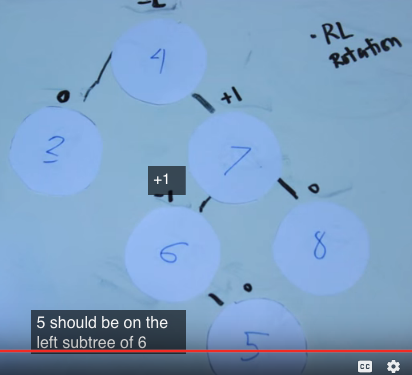 -2
4
· RL
Rotation
0
3
+1
7
+1
0
6
8
0
5 should be on the
left subtree of 6
5
CC